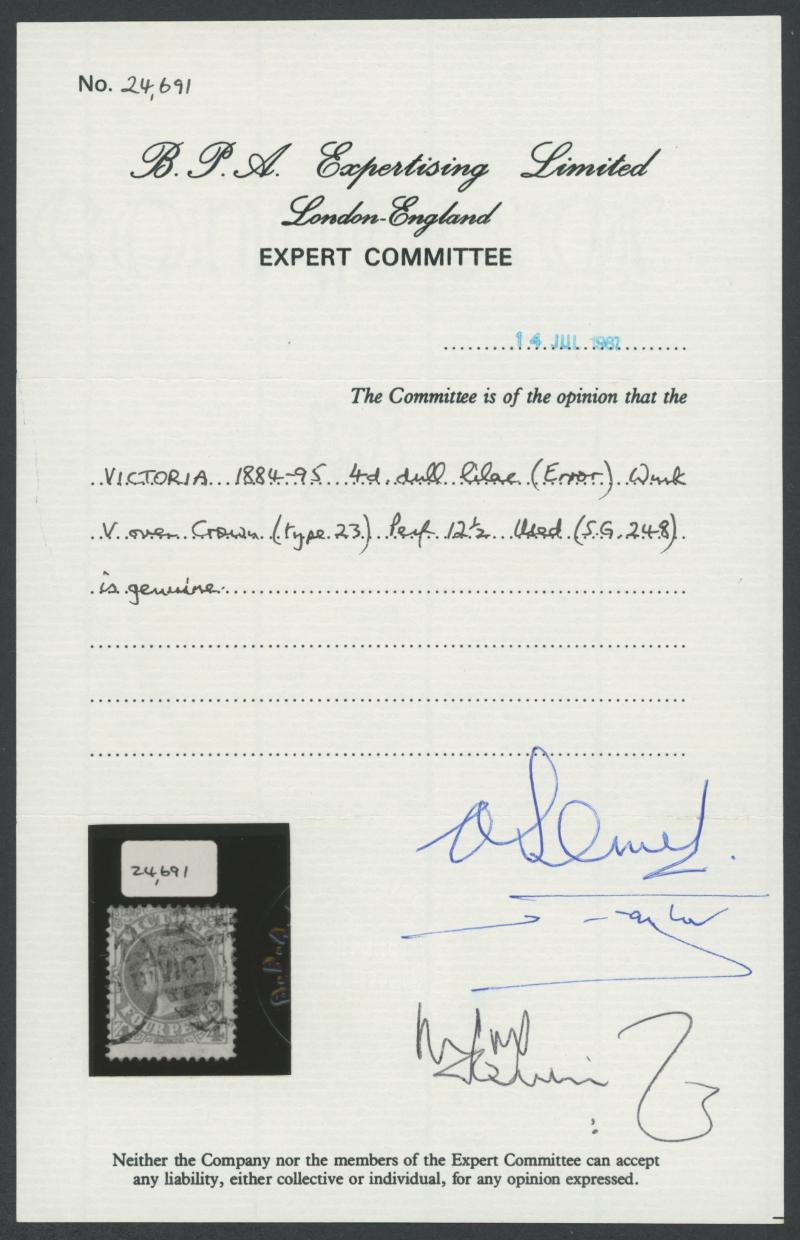 No. 24,691
B. P. A. Expertising Limited
London-England
EXPERT COMMITTEE
14 JUL 1987
The Committee is of the opinion that the
VICTORIA 1884-95 4d. dull lilac (Error) Wmk
V over Crown (type 23) Perf 12½ Used (S.G. 248)
is genuine.
24,691
VICTORIA
VICT
FOUR PENCE
Neither the Company nor the members of the Expert Committee can accept
any liability, either collective or individual, for any opinion expressed.